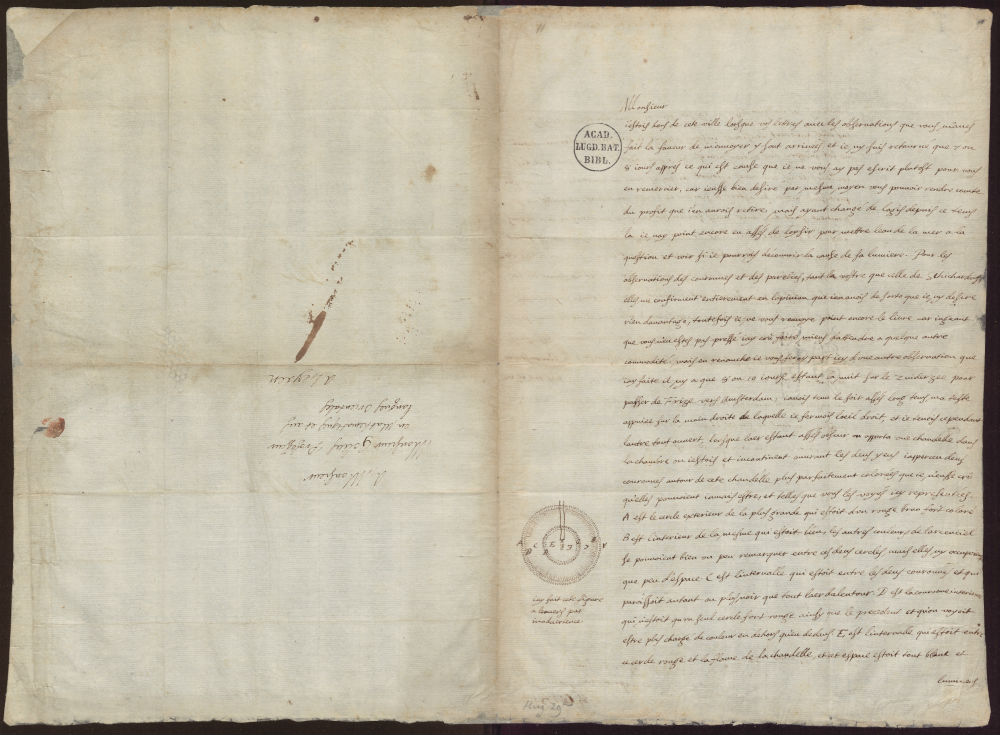 A Monsieur
Monsieur Professeur
en Mathematique et aux
langues Orientales
a Leyden
ACAD.
LUGD. BAT.
BIBL.
Monsieur
iestois hors de cete ville lorsque vos letres auec les observations que vous m'aues
fait la faueur de m'enuoyer y sont arriuees et ie n'y suis retourné que 7 ou
8 iours apres ce qui est cause que ie ne vous ay pas escrit plutost pour vous
en remercier, car i'eusse bien desire par mesme moyen vous pouuoir rendre conte
du profit que i'en aurois retiré, mais ayant changé de logis depuis ce tems
la ie n'ay point encore eu asses de loysir pour mettre l'eau de la mer a la
question et voir si ie pourrois decouurir la cause de sa lumiere. Pour les
observations des couronnes et des parelies, tant la vostre que celle de
elles me confirment entierement en l'opinion que i'en auois de sorte que ie n'y desire
rien dauantage, toutefois ie ne vous renuoye point encore le liure car iugeant
que vous n'en esties pas pressé i'ay creu faire mieus d'attendre a quelque autre
commodité. mais en reuanche ie vous feray part icy d'une autre observation que
i'ay faite il n'y a que 8 ou 10 iours, estant la nuit sur le Zuiderzee pour
passer de Frize vers Amsterdam. i'auois tenu le soir asses long tems ma teste
appuiee sur la main droite de laquelle ie fermois l'oeil droit, et ie tenois cependant
l'autre tout ouuert, lorsque l'aer estant asses obscur on apporta une chandelle dans
la chambre ou i'estois et incontinent ouurant les deus yeus i'apperceu deus
couronnes autour de cete chandelle plus parfaitement colorées que ie n'eusse creu
qu'elles pouuoient iamais estre, et telles que vous les voyes icy representees.
A est le cercle exterieur de la plus grande qui estoit d'un rouge brun fort coloré
B est l'interieur de la mesme qui estoit bleu, les autres couleurs de l'arc en ciel
se pouuoient bien un peu remarquer entre ces deus cercles mais elles n'y occupoient
que peu d'espace. C est l'interualle qui estoit entre les deus couronnes et qui
paroissoit autant ou plus noir que tout l'aer d'alentour. D est la couronne interieure
qui n'estoit qu'un seul cercle fort rouge ainsy que le precedent et qu'on voyoit
estre plus chargé de couleur en dehors qu'en dedans. E, est l'interualle qui estoit entre
ce cercle rouge et la flame de la chandelle, et cet espace estoit tout blanc et
lumineus
A B C D E E C B
i'ay fait cete figure
a l'enuers par
inaduertence
Hug 29